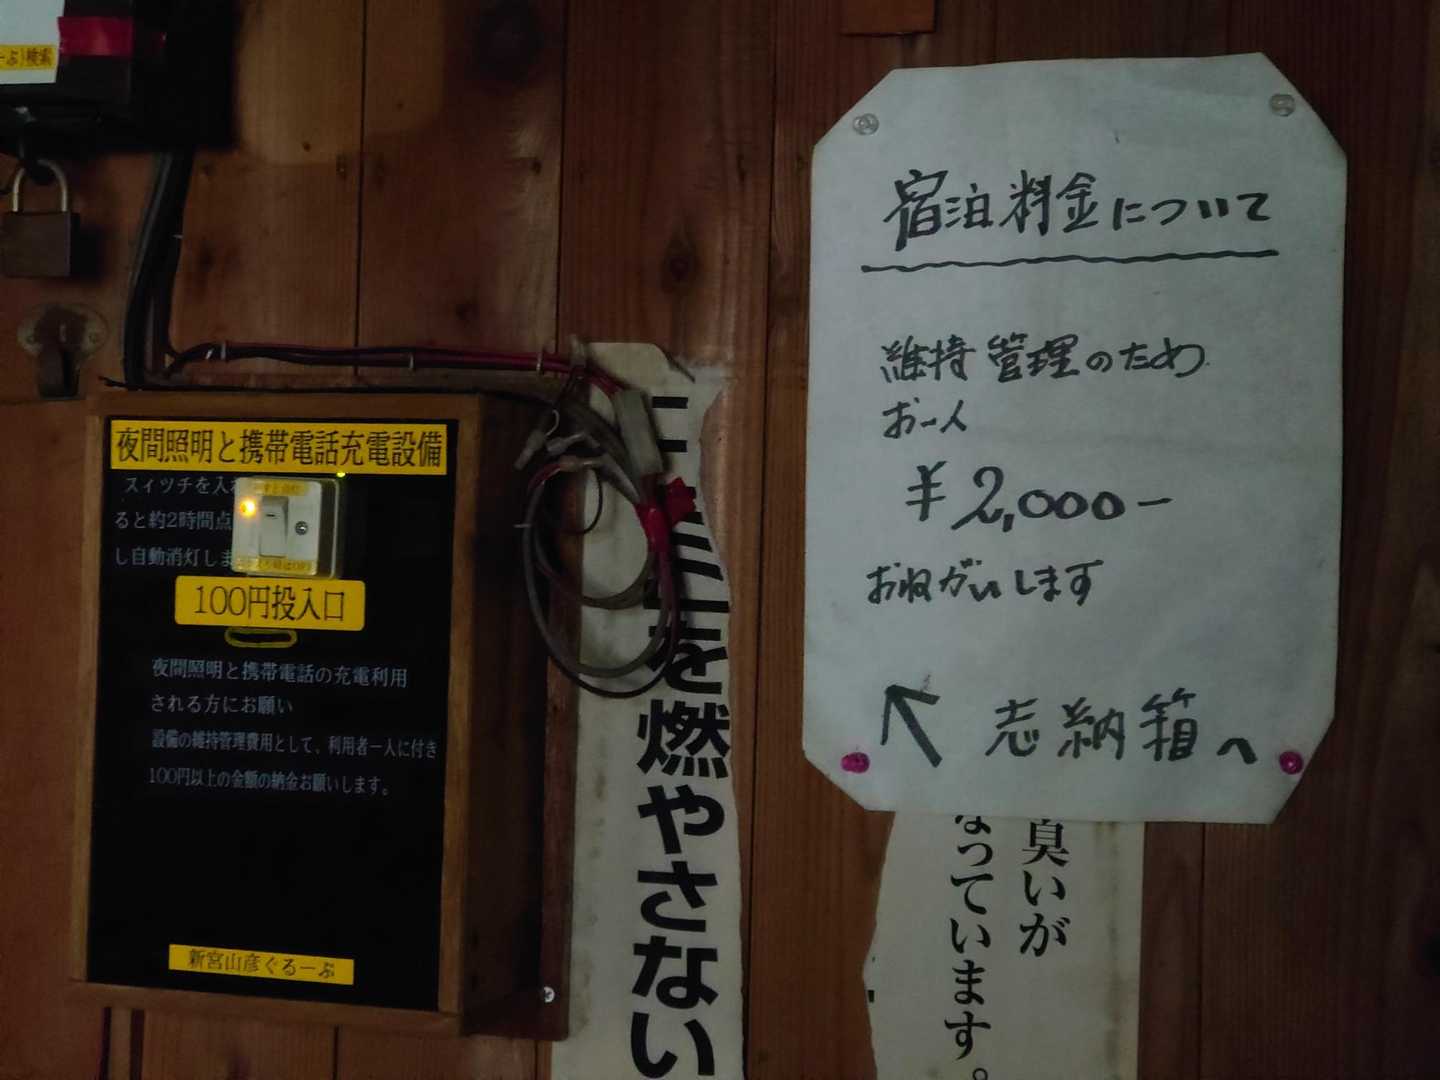 ーぷ)検索
夜間照明と携帯電話充電設備
スイッチを入
ると約2時間点
し自動消灯しま
100円投入口
夜間照明と携帯電話の充電利用
される方にお願い
設備の維持管理費用として、利用者一人に付き
100円以上の金額の納金お願いします。
新宮山彦ぐるーぷ
を燃やさない
宿泊料金について
維持管理のため
お一人
¥2,000-
おねがいします
↖ 志納箱へ
臭いが
なっています。